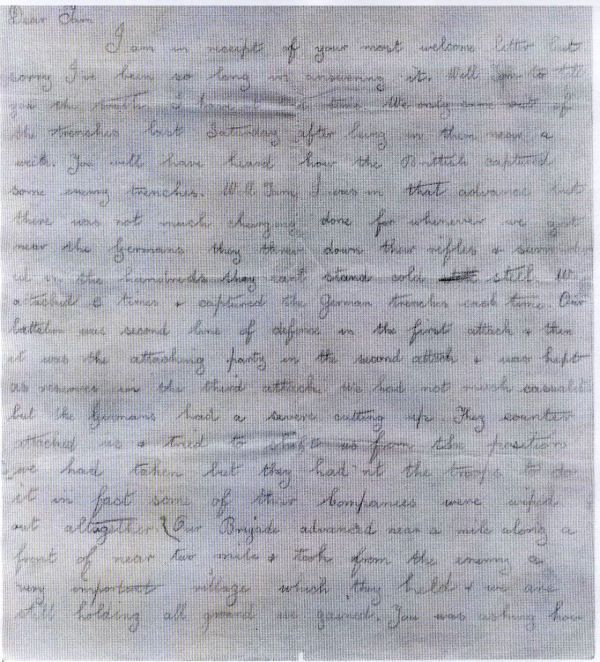 Dear Tam
I am in receipt of your most welcome letter but
sorry I've been so long in answering it. Well Tam to tell
you the truth I have time. We only came out of
the trenches last Saturday after being in them near a
week. You will have heard how the British captured
some enemy trenches. Well Tam, I was in that advance but
there was not much charging done for whenever we got
near the Germans they threw down their rifles & surrender
ed in the hundreds they can't stand cold steel. We
attacked 3 times & captured the German trenches each time. Our
battalion was second line of defence in the first attack & then
it was the attacking party in the second attack & was kept
as reserves in the third attack. We had not much casualties
but the Germans had a severe cutting up. They counter
attacked us & tried to us from the position
we had taken but they had'nt the troops to do
it in fact some of their Companies were wiped
out altogether. Our Brigade advanced near a mile along a
front of near two mile & took from the enemy a
very important village which they held & we are
still holding all ground we gained. You was asking how